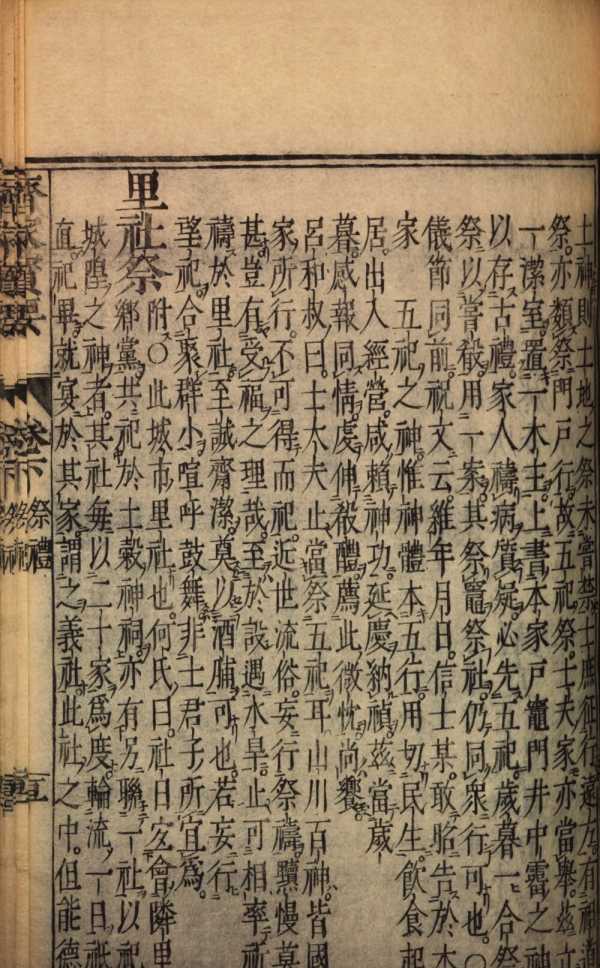 土神則土地之祭未嘗禁士庶但行遠方有神道
祭亦類祭門戶行故五祀祭士夫家亦當舉茲立
一潔室置一木主上書本家戶竈門井中霤之神
以存古禮家人禱病質疑必先五祀歲暮一合祭
祭以嘗殽用一案其祭竈祭社仍同衆行可也○
儀節同前祝文云維年月日信士某敢昭告於本
家　五祀之神惟神體本五行用切民生飲食起
居出入經營咸賴神功延慶納禎茲當歲
暮感報同情虔伸殽醴薦此微忱尚饗
呂和叔曰士大夫止當祭五祀耳山川百神皆國
家所行不可得而祀近世流俗妄行祭禱黷慢莫
甚豈有受福之理哉至於設遇水旱止可相率祈
禱於里社至誠齋潔莫以酒脯可也若妄行
望祀合聚群小喧呼鼓舞非士君子所宜爲
里社祭附○此城市里社也何氏曰社日宏會隣里
鄉黨共祀於土穀神祠亦有另聯一社以祀
城隍之神者其社每以二十家爲度輪流一日祇
直祀畢就宴於其家謂之義社此社之中但能德
卷下
祭禮